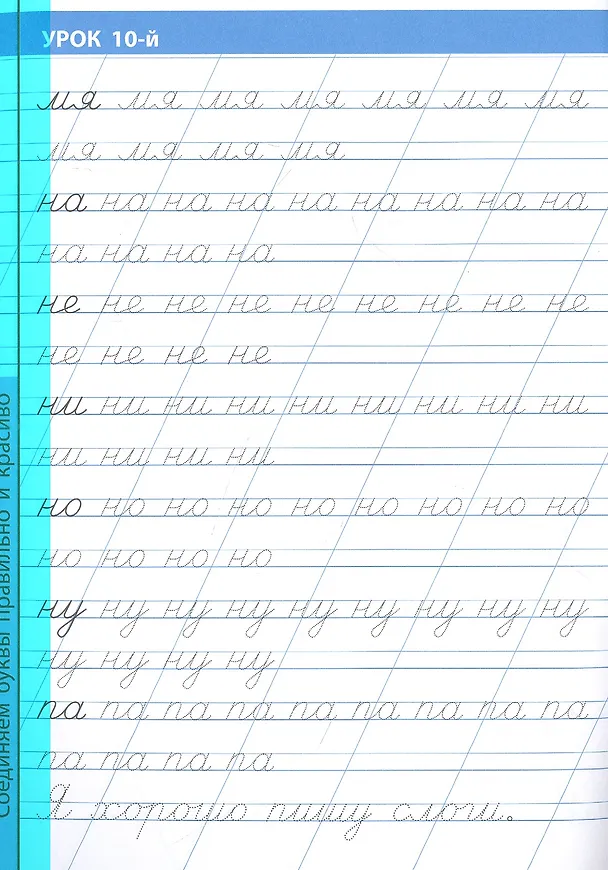 УРОК 10-й
мя мя мя мя мя мя мя
мя мя мя мя
на на на на на на на на на
на на на на
не не не не не не не не не
не не не не
ни ни ни ни ни ни ни ни ни
ни ни ни ни
но но но но но но но но но
но но но но
ну ну ну ну ну ну ну ну ну
ну ну ну ну
па па па па па па па па па
па па па па
Я хорошо пишу слоги.
Соединяем буквы правильно и красиво